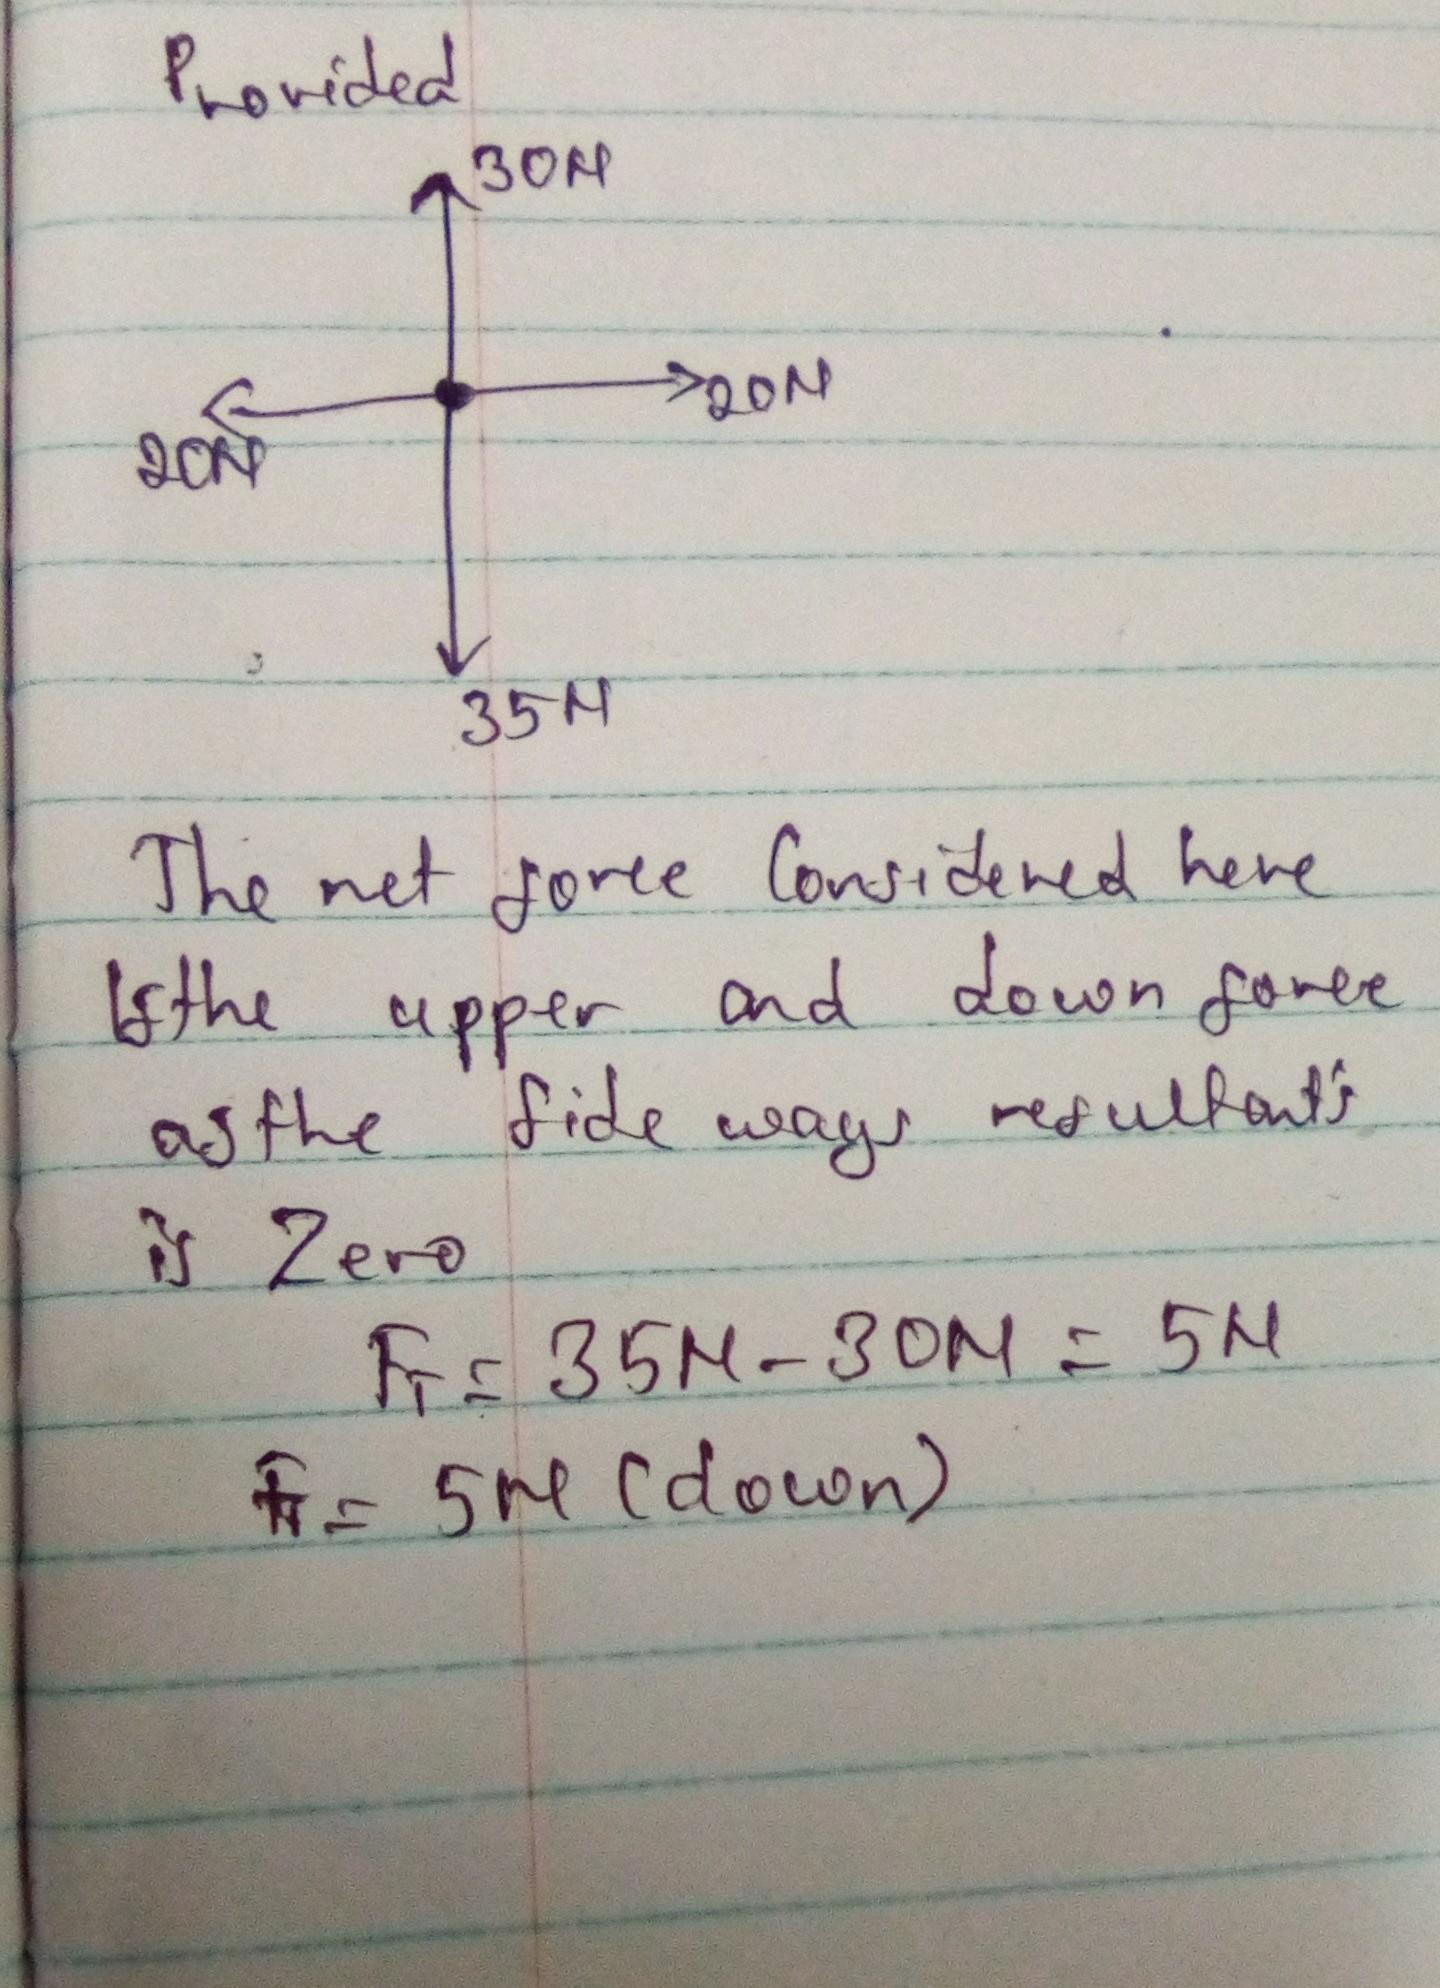 Provided
30N
20N
20N
35N
The net force Considered here
Is the upper and down force
as the side ways resultants
is Zero
F_T = 35N - 30N = 5N
= 5N (down)